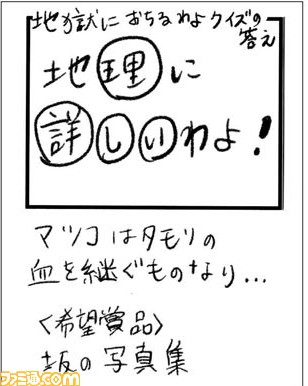 地獄におちるわよクイズの
答え
地理に
詳しいわよ!
マツコはタモリの
血を継ぐものなり…
<希望賞品>
坂の写真集
ファミ通.com